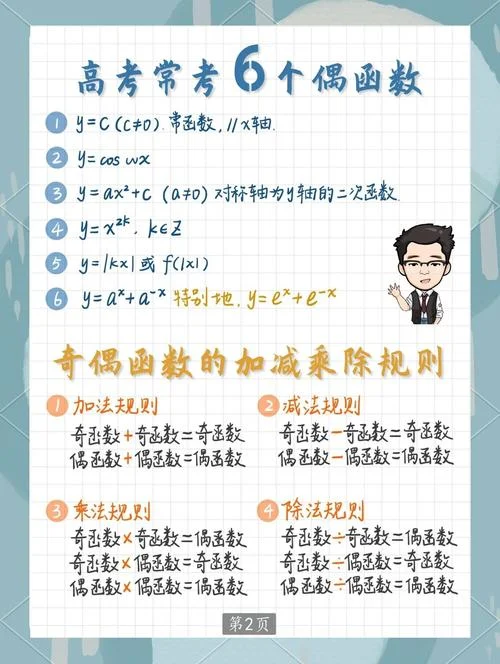 高考常考6个偶函数
1 y=C (C≠0).常函数,//x轴.
2 y=cos wx
3 y=ax²+c (a≠0) 对称轴为y轴的二次函数
4 y=x^{2k}, k∈Z
5 y=|kx| 或 f(|x|)
6 y=a^x+a^{-x} 特别地, y=e^x+e^{-x}
奇偶函数的加减乘除规则
1 加法规则
奇函数+奇函数=奇函数
偶函数+偶函数=偶函数
2 减法规则
奇函数-奇函数=奇函数
偶函数-偶函数=偶函数
3 乘法规则
奇函数×奇函数=偶函数
奇函数×偶函数=奇函数
偶函数×偶函数=偶函数
4 除法规则
奇函数÷奇函数=偶函数
奇函数÷偶函数=奇函数
偶函数÷偶函数=偶函数
第2页